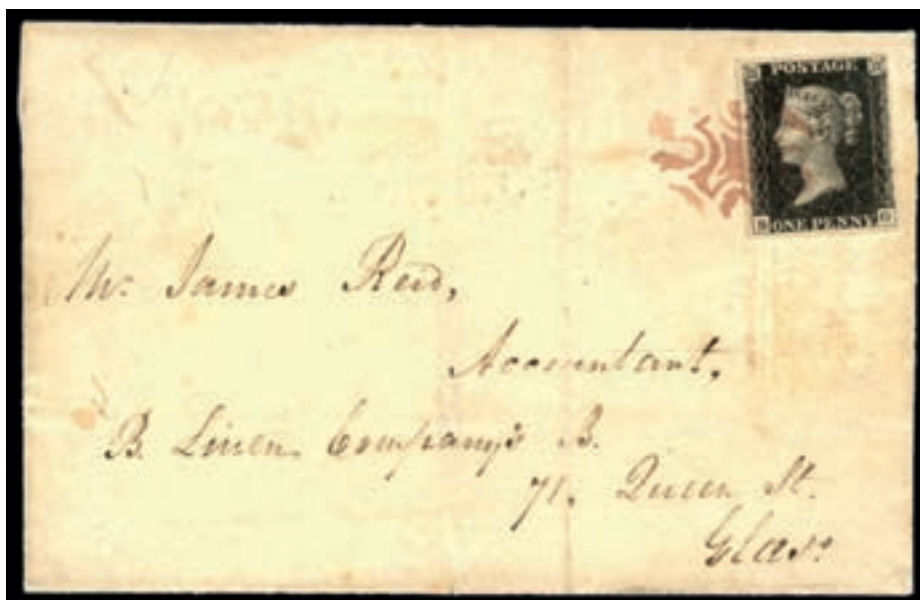 POSTAGE
ONE PENNY
Mr. James Reid,
Accountant,
B. Linen Company's B.
71. Queen St.
Glasº